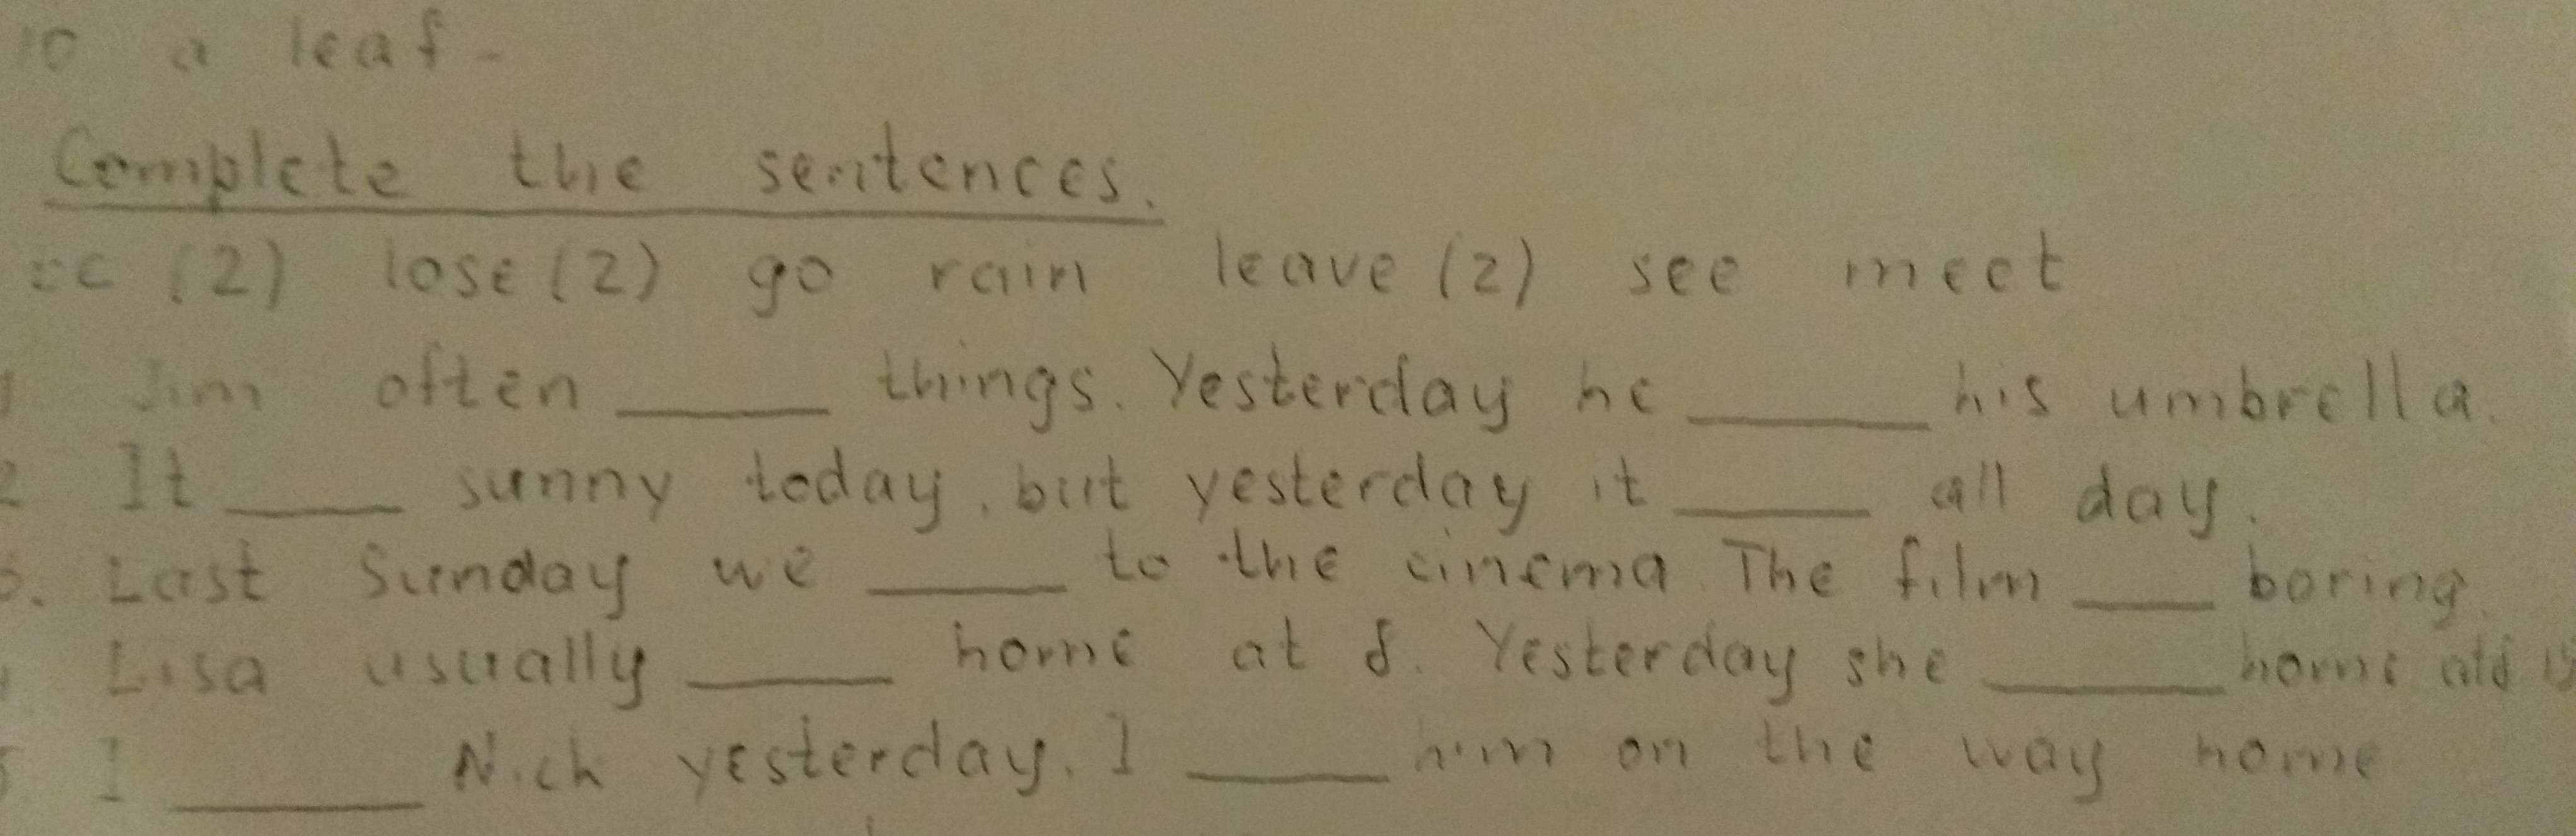 10 a leaf -
Complete the sentences.
(2) lose (2) go rain leave (2) see meet
1 Jim often _____ things. Yesterday he _____ his umbrella.
2 It _____ sunny today, but yesterday it _____ all day.
3. Last Sunday we _____ to the cinema. The film _____ boring.
Lisa usually _____ home at 8. Yesterday she _____ home at
5 I _____ Nick yesterday. I _____ him on the way home